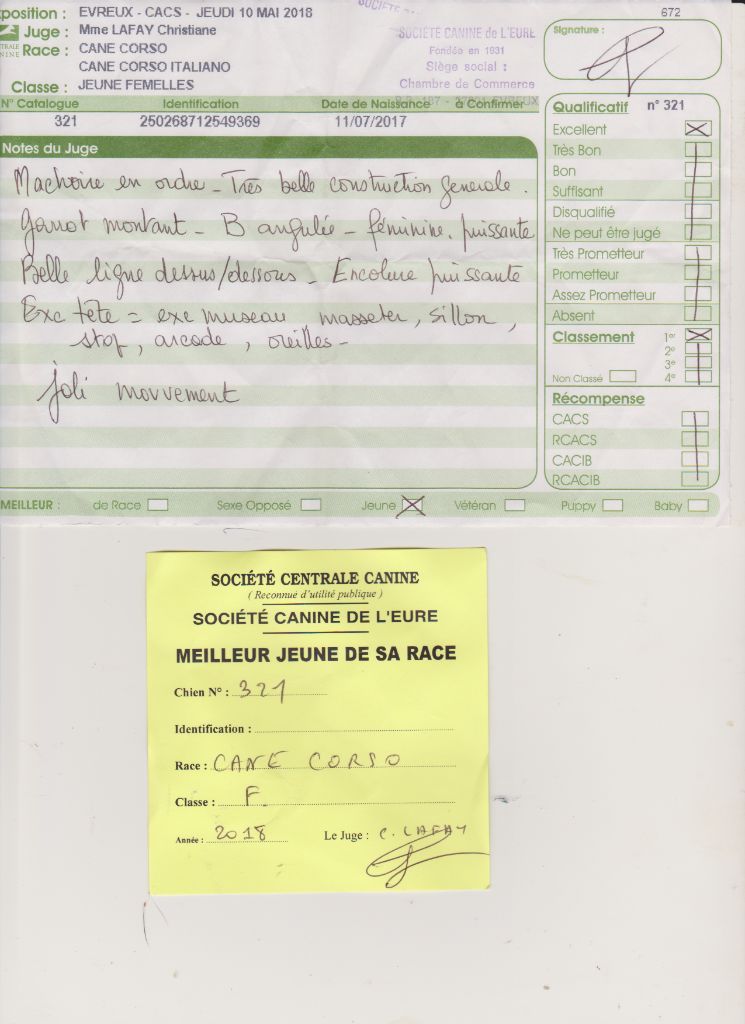 position : EVREUX - CACS - JEUDI 10 MAI 2018
672
Juge : Mme LAFAY Christiane
Race : CANE CORSO
CANE CORSO ITALIANO
Classe : JEUNE FEMELLES
SOCIÉTÉ CANINE de L'EURE
Fondée en 1931
Siège social :
Chambre de Commerce
EVREUX
Signature :
N° Catalogue Identification Date de Naissance à Confirmer
321 250268712549369 11/07/2017
Notes du Juge
Machoire en ordre - Très belle construction generale.
garrot montant - B angulée - féminine. puissante
Belle ligne dessus/dessous - Encolure puissante
Exc tête = exc museau masseter, sillon,
stop, arcade, oreilles -
joli mouvement
Qualificatif n° 321
Excellent
Très Bon
Bon
Suffisant
Disqualifié
Ne peut être jugé
Très Prometteur
Prometteur
Assez Prometteur
Absent
Classement 1er
2e
3e
Non Classé 4e
Récompense
CACS
RCACS
CACIB
RCACIB
MEILLEUR : de Race Sexe Opposé Jeune Vétéran Puppy Baby
SOCIÉTÉ CENTRALE CANINE
( Reconnue d'utilité publique )
SOCIÉTÉ CANINE DE L'EURE
MEILLEUR JEUNE DE SA RACE
Chien N° : 321
Identification :
Race : CANE CORSO
Classe : F.
Année : 2018 Le Juge : C. LAFAY